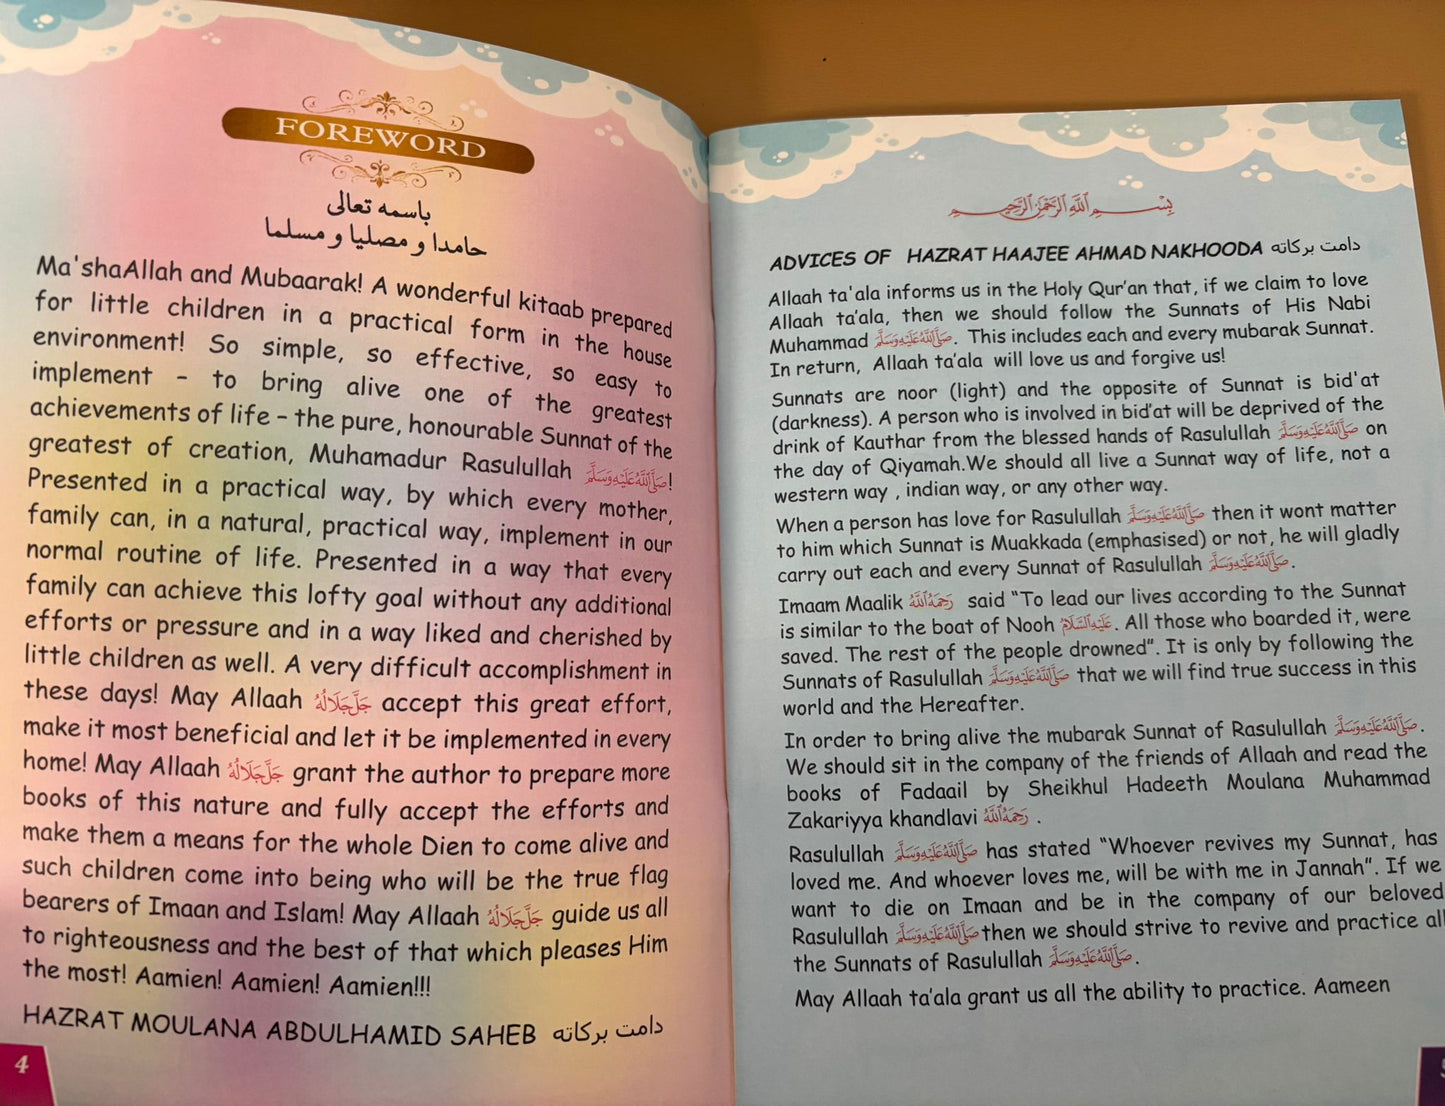 FOREWORD
باسمه تعالى
حامدا و مصليا و مسلما
Ma'shaAllah and Mubaarak! A wonderful kitaab prepared
for little children in a practical form in the house
environment! So simple, so effective, so easy to
implement – to bring alive one of the greatest
achievements of life – the pure, honourable Sunnat of the
greatest of creation, Muhamadur Rasulullah صَلَّى اللهُ عَلَيْهِ وَسَلَّمَ!
Presented in a practical way, by which every mother,
family can, in a natural, practical way, implement in our
normal routine of life. Presented in a way that every
family can achieve this lofty goal without any additional
efforts or pressure and in a way liked and cherished by
little children as well. A very difficult accomplishment in
these days! May Allaah جَلَّ جَلَالُهُ accept this great effort,
make it most beneficial and let it be implemented in every
home! May Allaah جَلَّ جَلَالُهُ grant the author to prepare more
books of this nature and fully accept the efforts and
make them a means for the whole Dien to come alive and
such children come into being who will be the true flag
bearers of Imaan and Islam! May Allaah جَلَّ جَلَالُهُ guide us all
to righteousness and the best of that which pleases Him
the most! Aamien! Aamien! Aamien!!!
HAZRAT MOULANA ABDULHAMID SAHEB دامت بركاته
4
بِسْمِ اللَّهِ الرَّحْمَٰنِ الرَّحِيمِ
ADVICES OF HAZRAT HAAJEE AHMAD NAKHOODA دامت بركاته
Allaah ta'ala informs us in the Holy Qur'an that, if we claim to love
Allaah ta'ala, then we should follow the Sunnats of His Nabi
Muhammad صَلَّى اللهُ عَلَيْهِ وَسَلَّمَ. This includes each and every mubarak Sunnat.
In return, Allaah ta'ala will love us and forgive us!
Sunnats are noor (light) and the opposite of Sunnat is bid'at
(darkness). A person who is involved in bid'at will be deprived of the
drink of Kauthar from the blessed hands of Rasulullah صَلَّى اللهُ عَلَيْهِ وَسَلَّمَ on
the day of Qiyamah.We should all live a Sunnat way of life, not a
western way , indian way, or any other way.
When a person has love for Rasulullah صَلَّى اللهُ عَلَيْهِ وَسَلَّمَ then it wont matter
to him which Sunnat is Muakkada (emphasised) or not, he will gladly
carry out each and every Sunnat of Rasulullah صَلَّى اللهُ عَلَيْهِ وَسَلَّمَ.
Imaam Maalik رَحِمَهُ اللَّهُ said "To lead our lives according to the Sunnat
is similar to the boat of Nooh عَلَيْهِ السَّلَامُ. All those who boarded it, were
saved. The rest of the people drowned". It is only by following the
Sunnats of Rasulullah صَلَّى اللهُ عَلَيْهِ وَسَلَّمَ that we will find true success in this
world and the Hereafter.
In order to bring alive the mubarak Sunnat of Rasulullah صَلَّى اللهُ عَلَيْهِ وَسَلَّمَ.
We should sit in the company of the friends of Allaah and read the
books of Fadaail by Sheikhul Hadeeth Moulana Muhammad
Zakariyya khandlavi رَحِمَهُ اللَّهُ .
Rasulullah صَلَّى اللهُ عَلَيْهِ وَسَلَّمَ has stated "Whoever revives my Sunnat, has
loved me. And whoever loves me, will be with me in Jannah". If we
want to die on Imaan and be in the company of our beloved
Rasulullah صَلَّى اللهُ عَلَيْهِ وَسَلَّمَ then we should strive to revive and practice all
the Sunnats of Rasulullah صَلَّى اللهُ عَلَيْهِ وَسَلَّمَ.
May Allaah ta'ala grant us all the ability to practice. Aameen